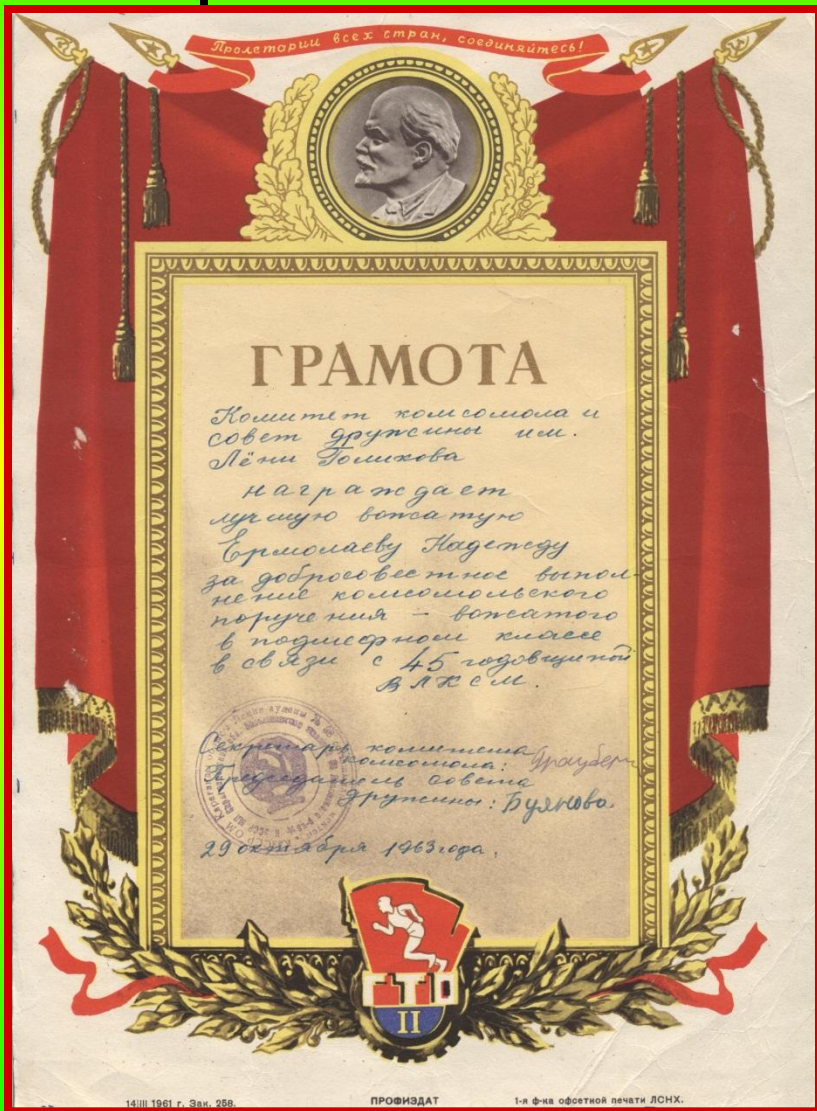 Пролетарии всех стран, соединяйтесь!
ГРАМОТА
Комитет комсомола и
совет дружины им.
Лёни Голикова
награждает
лучшую вожатую
Ермолаеву Надежду
за добросовестное выпол-
нение комсомольского
поручения – вожатого
в подшефном классе
в связи с 45 годовщиной
ВЛКСМ.
Секретарь комитета
комсомола:
Председатель совета
дружины: Буянова.
29 октября 1963 года.
ГТО
II
1961 г. Зак. 258.
ПРОФИЗДАТ
1-я ф-ка офсетной печати ЛСНХ.